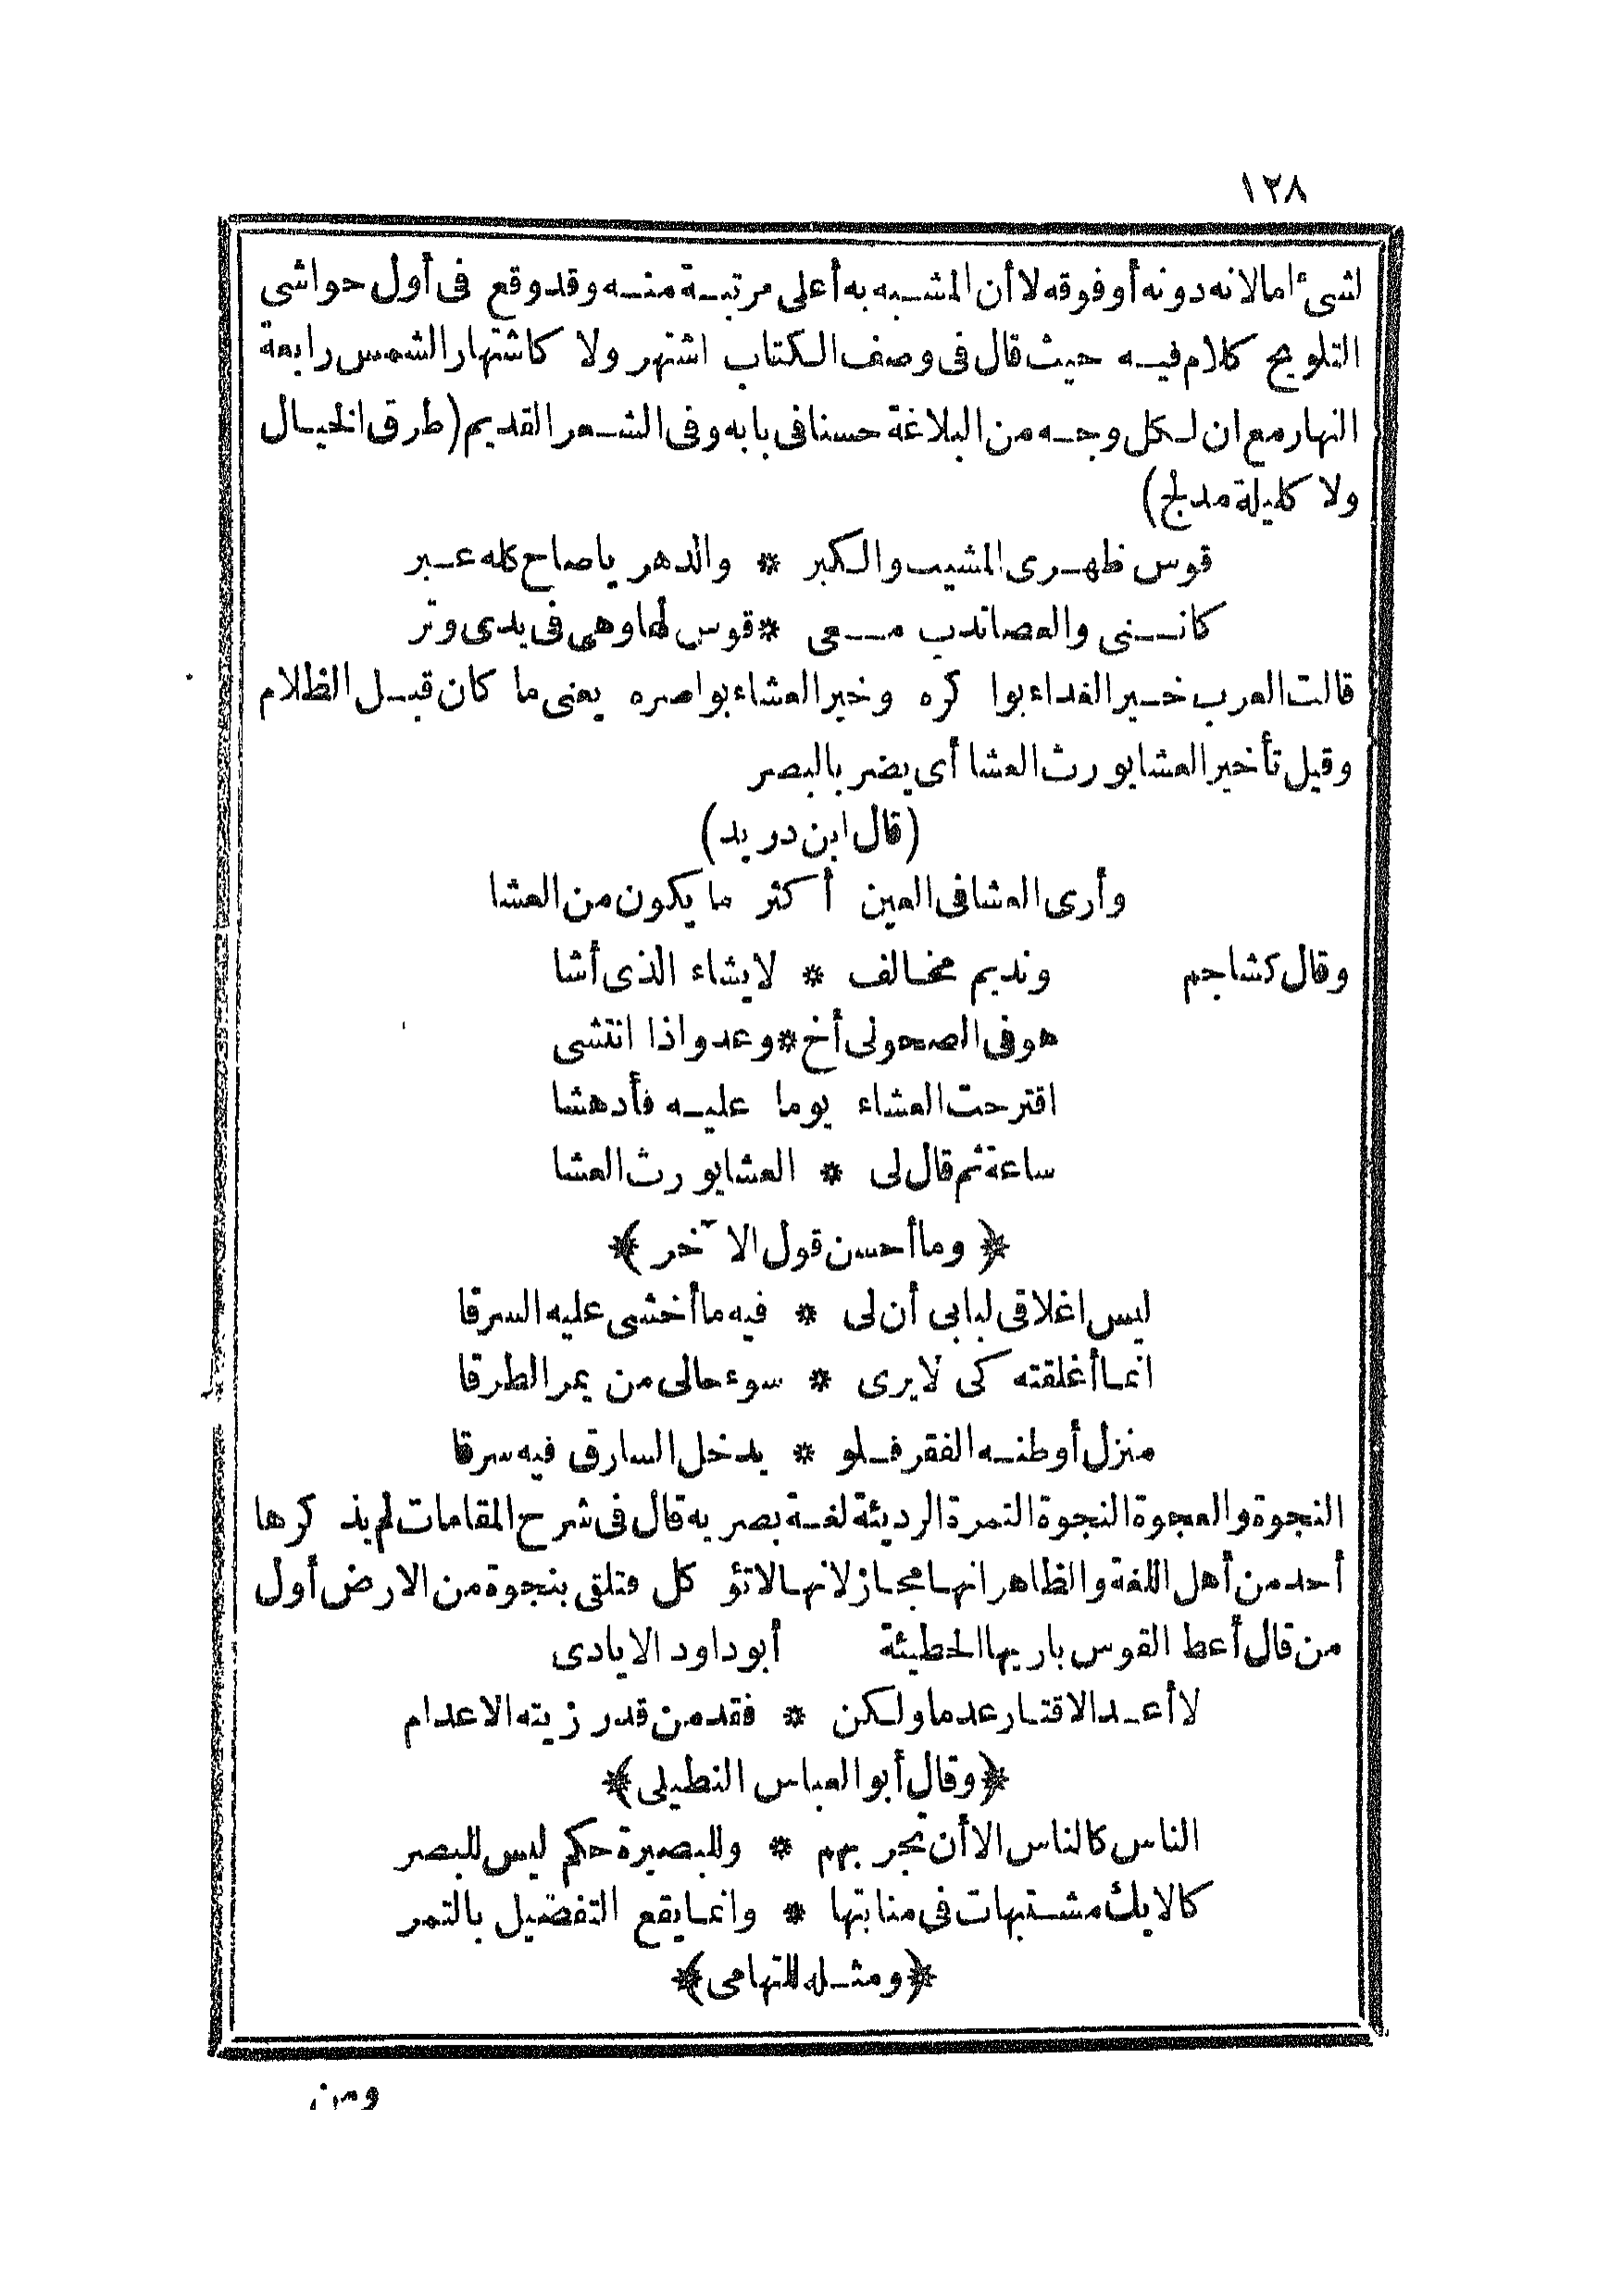 ١٢٨
لشىء امالانه دونه أوفوقه لاأن المشبه به أعلى مرتبة منه وقدوقع فى أول حواشى
التلويح كلام فيه حيث قال فى وصف الكتاب اشتهر ولا كاشتهار الشمس رابعة
النهار مع ان لكل وجه من البلاغة حسنا فى بابه وفى الشعر القديم (طرق الخيال
ولا كليلة مدلج)
قوس ظهرى المشيب والكبر * والدهر ياصاح كله عبر
كاننى والعصا تدب معى * قوس لها وهى فى يدى وتر
قالت العرب خير الغداء بوا كره وخير العشاء بواصره يعنى ما كان قبل الظلام
وقيل تأخير العشا يورث العشا أى يضر بالبصر
(قال ابن دريد)
وأرى العشا فى العين أكثر ما يكون من العشا
وقال كشاجم ونديم مخالف * لايشاء الذى أشا
هو فى الصحو لى أخ * وعدو اذا انتشى
اقترحت العشاء يوما عليه فأدهشا
ساعة ثم قال لى * العشا يورث العشا
﴿ وما أحسن قول الآخر ﴾
ليس اغلاقى لبابى أن لى * فيه ما أخشى عليه السرقا
انما أغلقته كى لايرى * سوء حالى من يمر الطرقا
منزل أوطنه الفقر فلو * يدخل السارق فيه سرقا
النجوة والعجوة النجوة التمرة الرديئة لغة بصريه قال فى شرح المقامات لم يذ كرها
أحد من أهل اللغة والظاهر انها مجاز لانها لاتؤ كل فتلقى بنجوة من الارض أول
من قال أعط القوس باريها الحطيئة أبو داود الايادى
لا أعد الاقتار عدما ولكن * فقد من قدر زيته الاعدام
﴿وقال أبو العباس النطيلى﴾
الناس كالناس الا أن تجر بهم * وللبصيرة حكم ليس للبصر
كالايك مشتبهات فى منابتها * وانما يقع التفضيل بالتمر
﴿ومثله للتهامى﴾
ومن